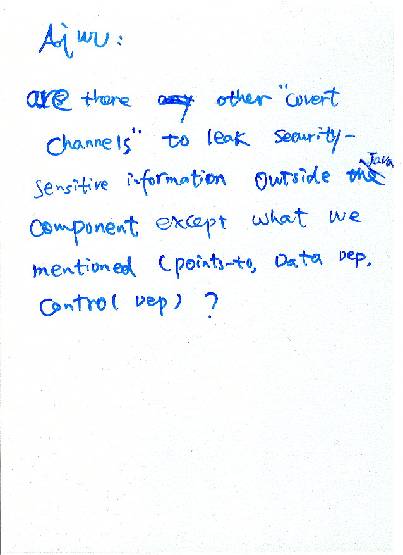 Ai wu:
are there any other "covert
channels" to leak security-
sensitive information outside the Java
component except what we
mentioned (points-to, Data Dep,
Control Dep) ?